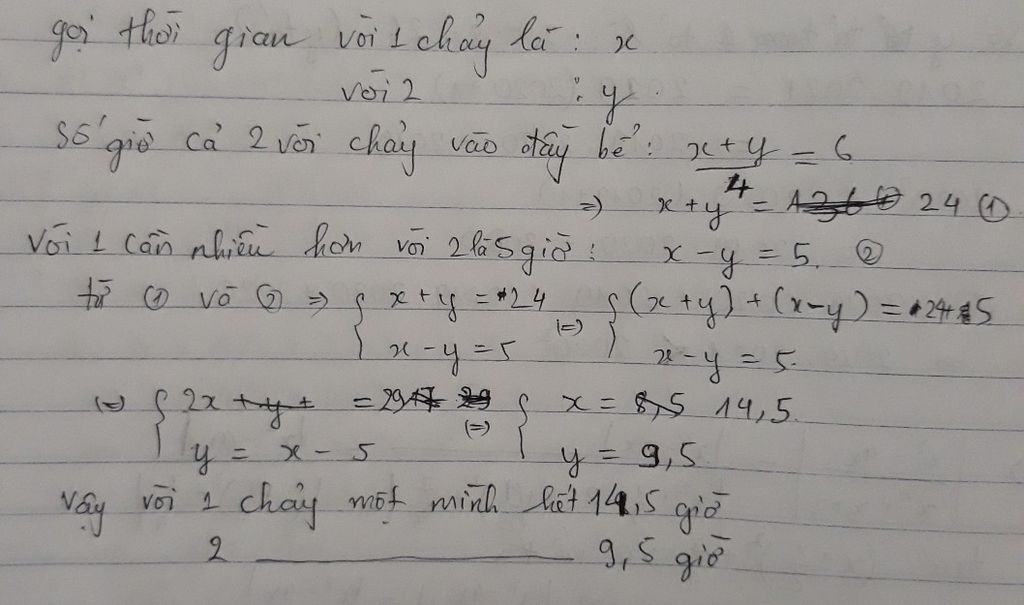 gọi thời gian vòi 1 chảy là : x
vòi 2 : y.
Số giờ cả 2 vòi chảy vào đầy bể : x + y / 4 = 6
=> x + y = 24 ①
Vòi 1 cần nhiều hơn vòi 2 là 5 giờ : x - y = 5. ②
từ ① và ② => { x + y = 24 (=) { (x + y) + (x - y) = 24 + 5
x - y = 5 x - y = 5.
(=) { 2x = 29 (=) { x = 14,5.
y = x - 5 y = 9,5
Vậy vòi 1 chảy một mình hết 14,5 giờ
2 ——— 9,5 giờ